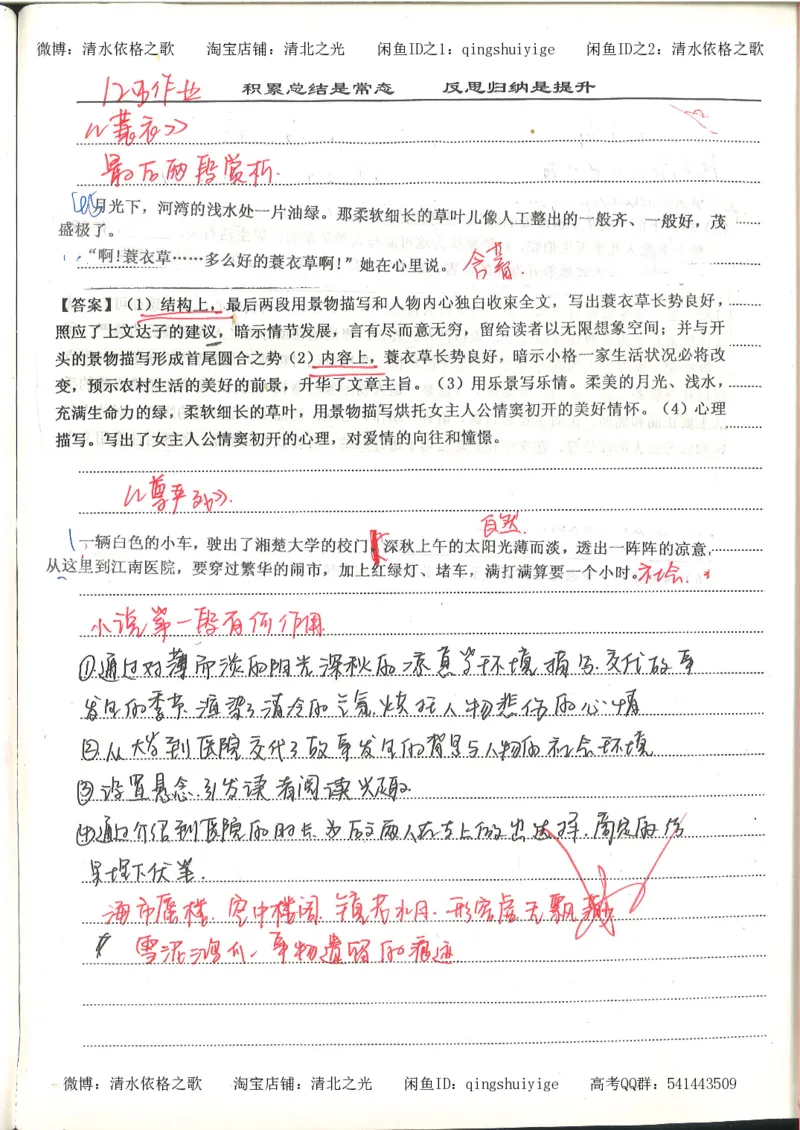 微博：清水依格之歌 淘宝店铺：清北之光 闲鱼ID之1：qingshuiyige 闲鱼ID之2：清水依格之歌
12写作业 积累总结是常态 反思归纳是提升
《蓑衣》
最后两段赏析.
月光下，河湾的浅水处一片油绿。那柔软细长的草叶儿像人工整出的一般齐、一般好，茂
盛极了。
“啊！蓑衣草……多么好的蓑衣草啊！”她在心里说。
【答案】（1）结构上，最后两段用景物描写和人物内心独白收束全文，写出蓑衣草长势良好，
照应了上文达子的建议，暗示情节发展，言有尽而意无穷，留给读者以无限想象空间；并与开
头的景物描写形成首尾圆合之势（2）内容上，蓑衣草长势良好，暗示小格一家生活状况必将改
变，预示农村生活的美好的前景，升华了文章主旨。（3）用乐景写乐情。柔美的月光、浅水，
充满生命力的绿，柔软细长的草叶，用景物描写烘托女主人公情窦初开的美好情怀。（4）心理
描写。写出了女主人公情窦初开的心理，对爱情的向往和憧憬。
《尊严的》.
自然.
一辆白色的小车，驶出了湘楚大学的校门 深秋上午的太阳光薄而淡，透出一阵阵的凉意，
从这里到江南医院，要穿过繁华的闹市，加上红绿灯、堵车，满打满算要一个小时。社会.
小说第一段有何作用
①通过对薄而淡的阳光 深秋的凉意等环境描写.交代故事
发生的季节.渲染了清冷的气氛.烘托人物悲伤的心情
②从大学到医院交代了故事发生的背景与人物的社会环境
③设置悬念.引发读者阅读兴趣
④通过介绍到医院的时长 为后文两人在车上做出选择.
埋下伏笔.
海市蜃楼.空中楼阁.镜花水月.形容虚无飘渺
雪泥鸿爪.事物遗留的痕迹
微博：清水依格之歌 淘宝店铺：清北之光 闲鱼ID：qingshuiyige 高考QQ群：541443509